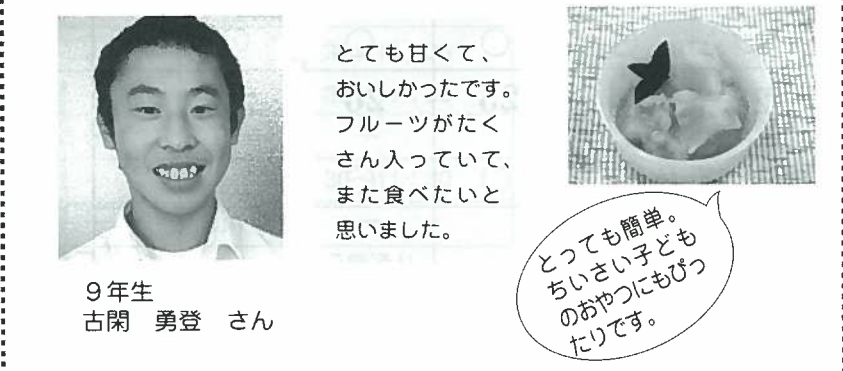 とても甘くて、
おいしかったです。
フルーツがたく
さん入っていて、
また食べたいと
思いました。
9年生
古閑　勇登　さん
とっても簡単。
ちいさい子ども
のおやつにもぴっ
たりです。